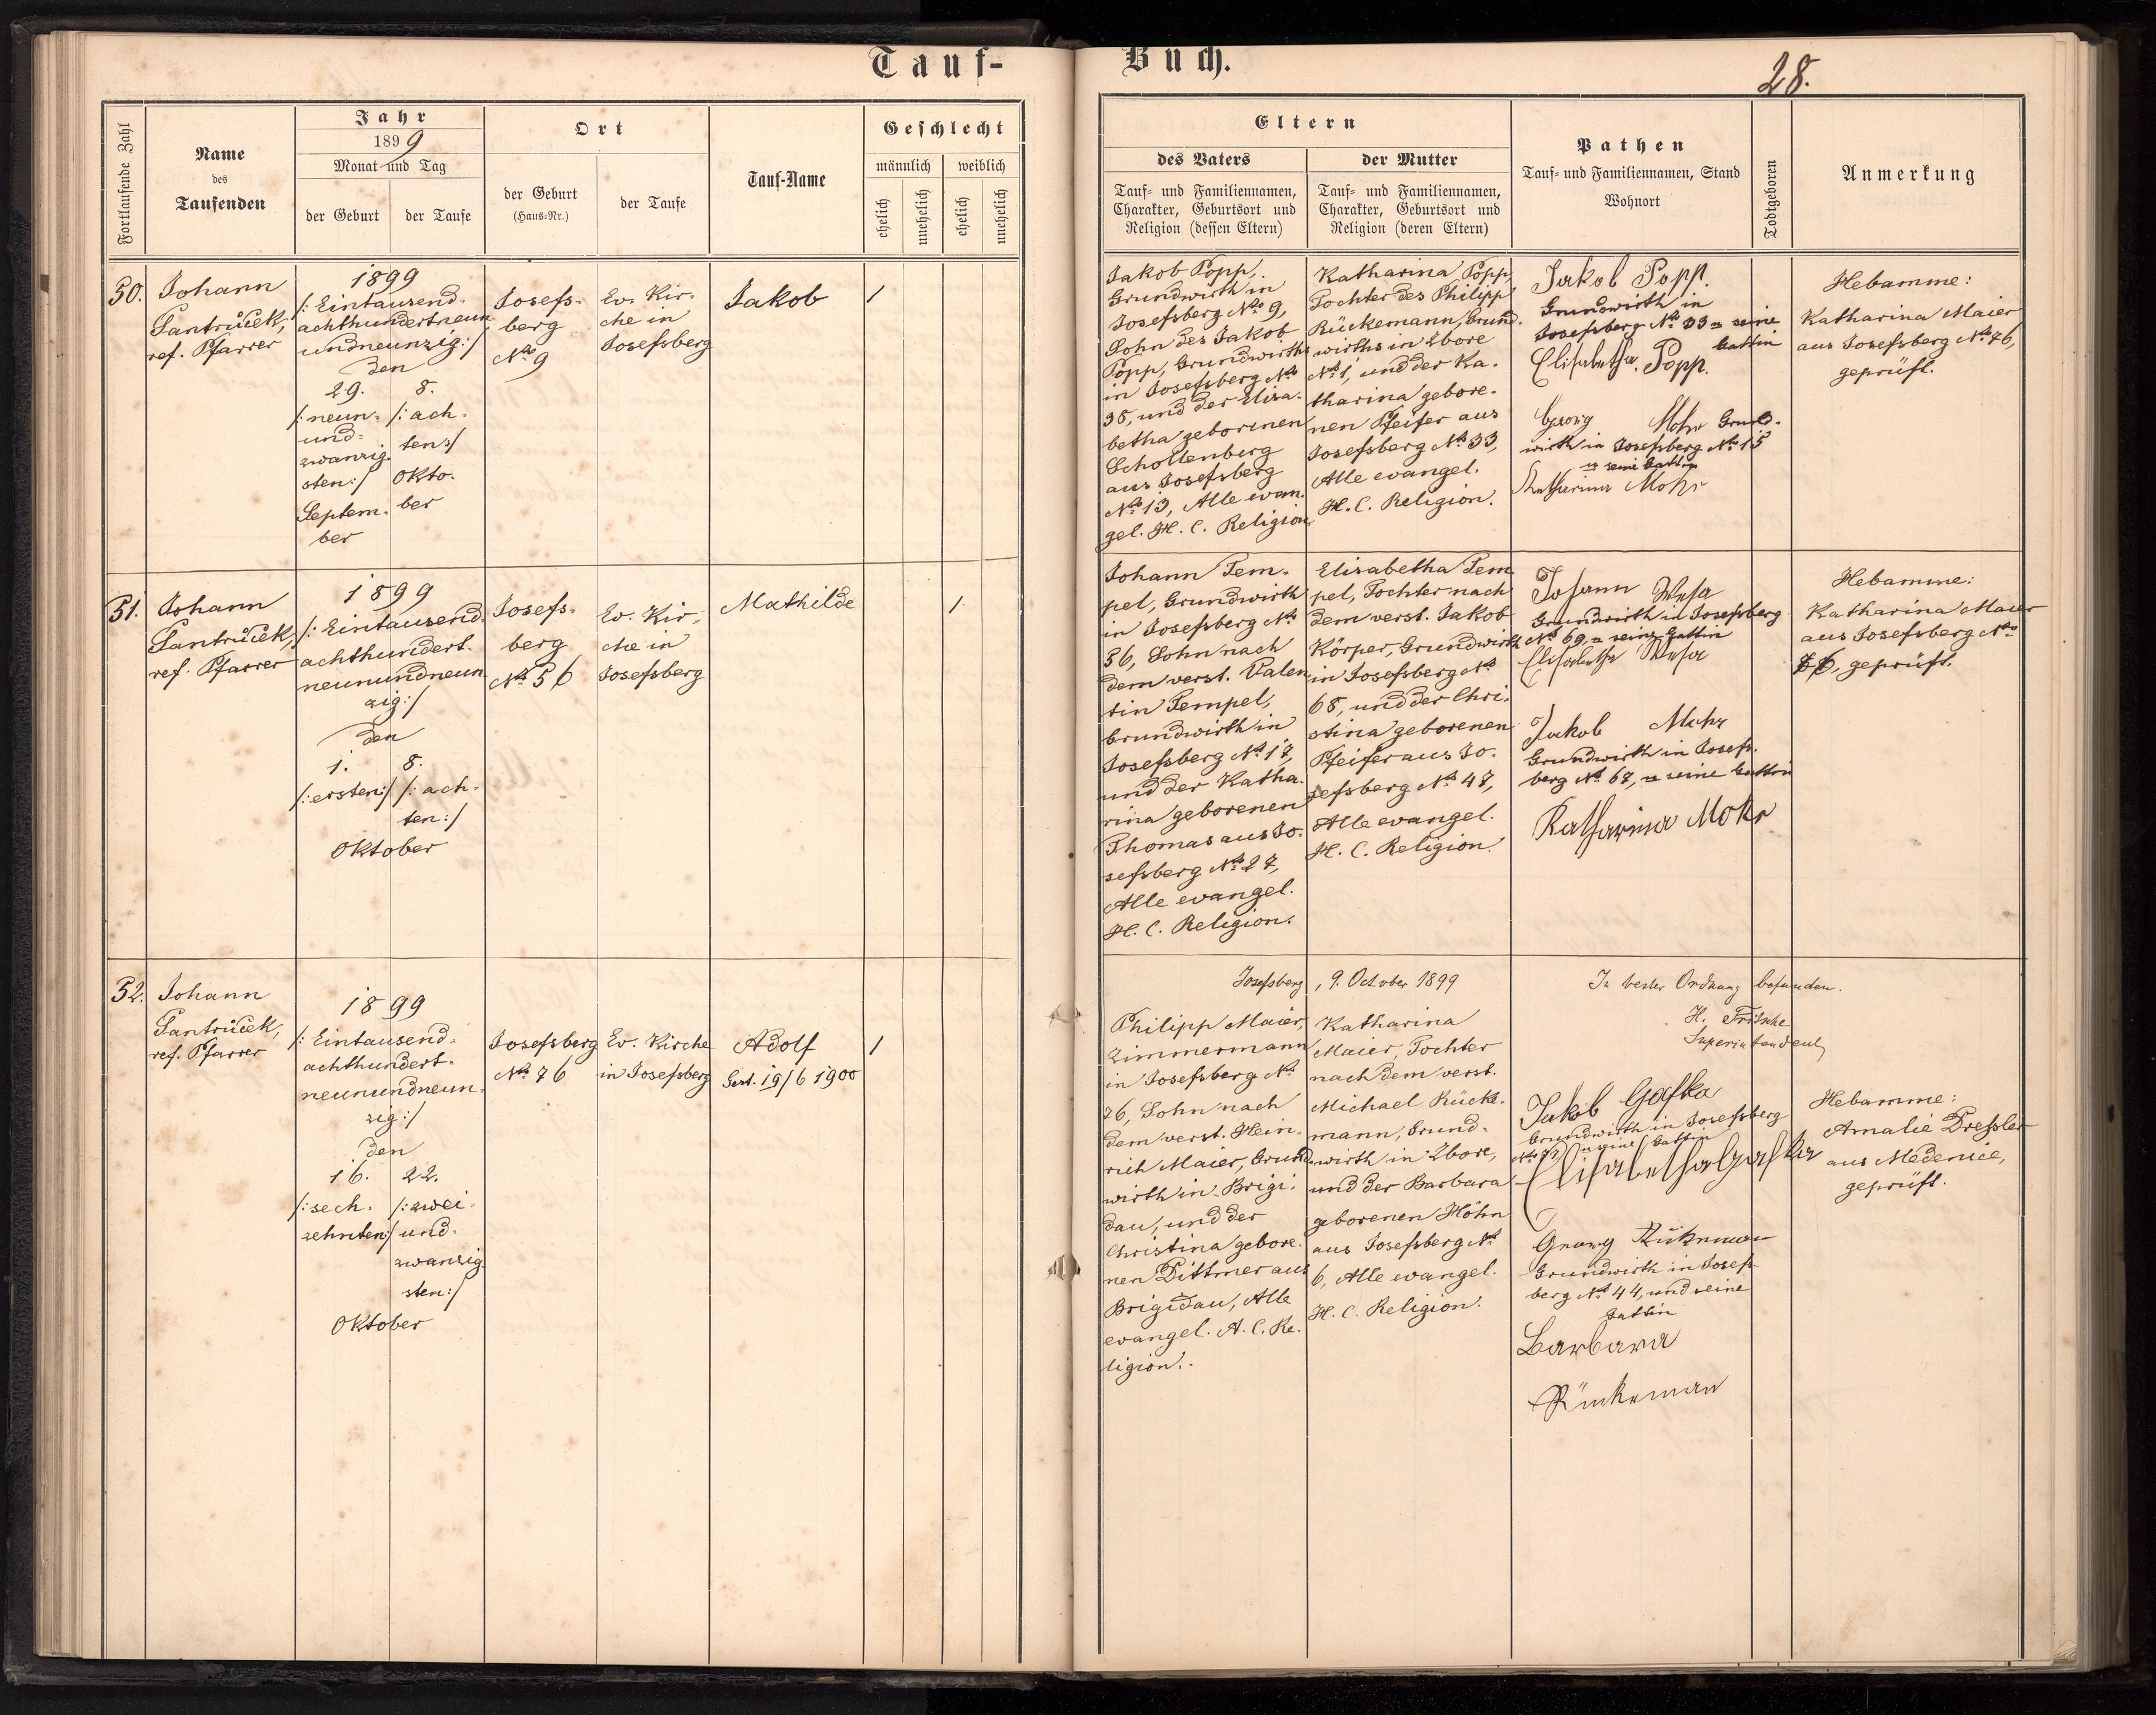 Tauf-
Buch.
28.
Fortlaufende Zahl
Name
des
Taufenden
Jahr
1899
Monat und Tag
der Geburt
der Taufe
Ort
der Geburt
(Haus-Nr.)
der Taufe
Tauf-Name
Geschlecht
männlich
weiblich
ehelich
unehelich
ehelich
unehelich
Eltern
des Vaters
Tauf- und Familiennamen,
Charakter, Geburtsort und
Religion (dessen Eltern)
der Mutter
Tauf- und Familiennamen,
Charakter, Geburtsort und
Religion (deren Eltern)
Pathen
Tauf- und Familiennamen, Stand
Wohnort
Todtgeboren
Anmerkung
50.
Johann
Santrůček,
ref. Pfarrer
1899
/: Eintausend-
achthundertneun
undneunzig:/
den
29.
/: neun-
und-
zwanzig
sten:/
Septem-
ber
8.
/: ach-
ten:/
Okto-
ber
Josefs-
berg
No 9
Ev. Kir-
che in
Josefsberg
Jakob
1
Jakob Popp,
Grundwirth in
Josefsberg No 9,
Sohn des Jakob
Popp, Grundwirths
in Josefsberg No
35, und der Elisa-
betha geborenen
Schollenberg
aus Josefsberg
No 13, Alle evan-
gel. H. C. Religion
Katharina Popp,
Tochter des Philipp
Rückemann, Grund-
wirths in Ebore
No 1, und der Ka-
tharina gebore-
nen Pfeifer aus
Josefsberg No 33,
Alle evangel.
H. C. Religion.
Jakob Popp.
Grundwirth in
Josefsberg No 33 u seine
Gattin
Elisabetha Popp.
Georg Mohr Grund-
wirth in Josefsberg No 15
u seine Gattin
Katharina Mohr
Hebamme:
Katharina Maier
aus Josefsberg No 76,
geprüft.
51.
Johann
Santrůček,
ref. Pfarrer
1899
/: Eintausend-
achthundert-
neunundneun
zig:/
den
1.
/: ersten:/
8.
/: ach-
ten:/
Oktober
Josefs-
berg
No 56
Ev. Kir-
che in
Josefsberg
Mathilde
1
Johann Tem-
pel, Grundwirth
in Josefsberg No
56, Sohn nach
dem verst. Valen
tin Tempel,
Grundwirth in
Josefsberg No 17,
und der Katha-
rina geborenen
Thomas aus Jo-
sefsberg No 27,
Alle evangel.
H. C. Religion.
Elisabetha Tem
pel, Tochter nach
dem verst. Jakob
Körper, Grundwirth
in Josefsberg No
68, und der Chri-
stina geborenen
Pfeifer aus Jo-
sefsberg No 47,
Alle evangel.
H. C. Religion.
Johann
Grundwirth in Josefsberg
No 69, u seine Gattin
Elisabetha
Jakob Mohr
Grundwirth in Josefs-
berg No 67, u seine Gattin
Katharina Mohr
Hebamme:
Katharina Maier
aus Josefsberg No
76, geprüft.
52.
Johann
Santrůček,
ref. Pfarrer
1899
/: Eintausend-
achthundert-
neunundneun-
zig:/
den
16.
/: sech-
zehnten:/
22.
/: zwei-
und-
zwanzig
sten:/
Oktober
Josefsberg
No 76
Ev. Kirche
in Josefsberg
Adolf
Gest. 19/6 1900
1
Josefsberg, 9. October 1899
In bester Ordnung befunden.
H. Fritsche
Superintendent
Philipp Maier,
Zimmermann
in Josefsberg No
76, Sohn nach
dem verst. Hein-
rich Maier, Grund-
wirth in Brigi-
dau, und der
Christina gebore-
nen Dittmer aus
Brigidau, Alle
evangel. A. C. Re-
ligion.
Katharina
Maier, Tochter
nach dem verst.
Michael Rücke-
mann, Grund-
wirth in Ebore,
und der Barbara
geborenen Höhn
aus Josefsberg No
6, Alle evangel.
H. C. Religion.
Jakob Gafka
Grundwirth in Josefsberg
u seine Gattin
Elisabetha Gafka
Georg Rükeman
Grundwirth in Josefs-
berg No 44, und seine
Gattin
Barbara
Rückeman
Hebamme:
Amalie Dressler
aus Medenice,
geprüft.